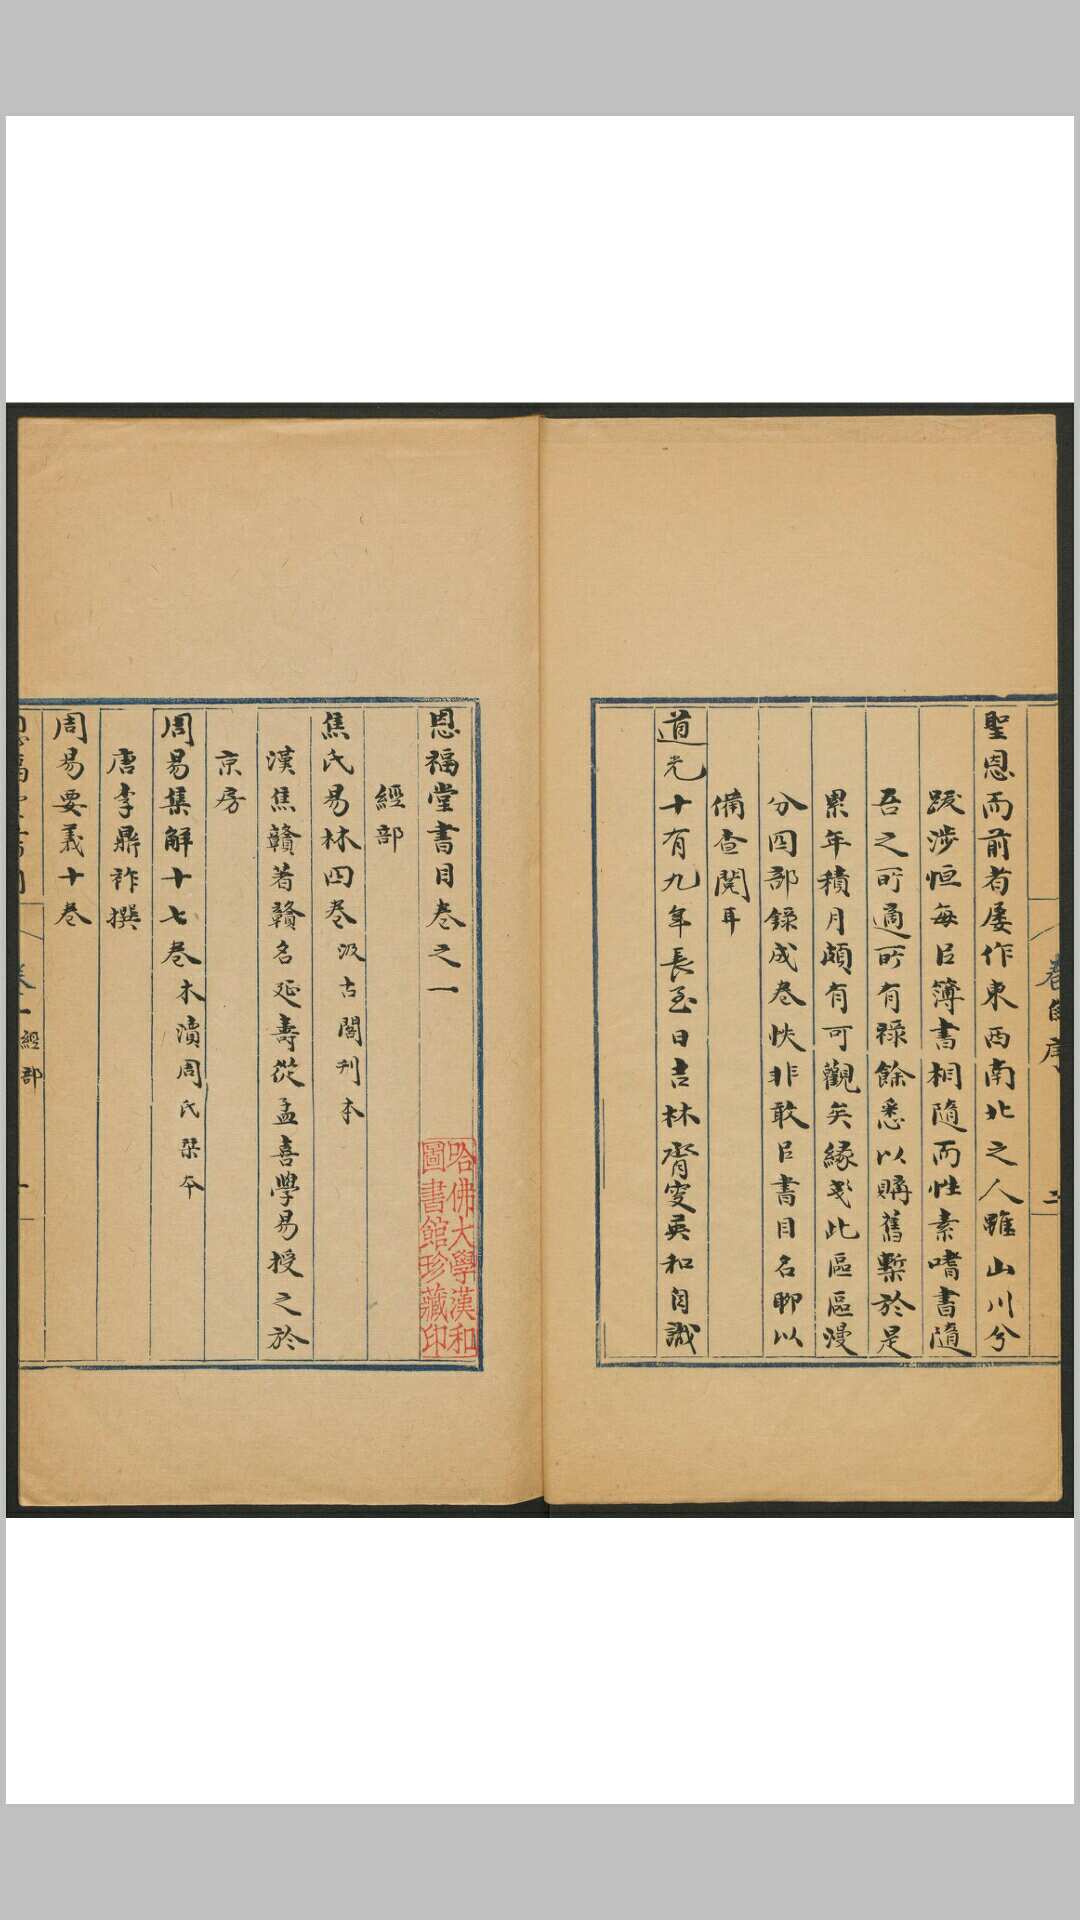 聖恩而前者屡作東西南北之人雖山川兮
跋涉恒每㠯簿書相隨而性素嗜書隨
吾之所適所有祿餘悉以購舊槧於是
累年積月頗有可觀矣緣或此區區漫
分四部錄成卷帙非敢㠯書目名聊以
備查閱耳
道光十有九年長至日吉林齊叟英和自識
卷首序
二
恩福堂書目卷之一
經部
焦氏易林四卷 汲古閣刊本
漢焦贛著贛名延壽從孟喜學易授之於
京房
周易集解十七卷 木瀆周氏栞本
唐李鼎祚撰
周易要義十卷
恩福堂書目
卷一 經部
一
哈佛大學漢和
圖書館珍藏印